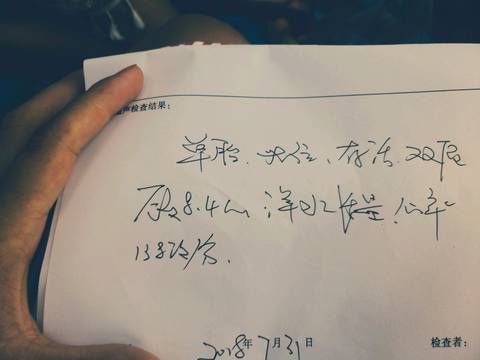 声检查结果:
单胎、头位、存活、双顶
径8.4cm 羊水 心率
138次/分.
2018年7月31日 检查者: